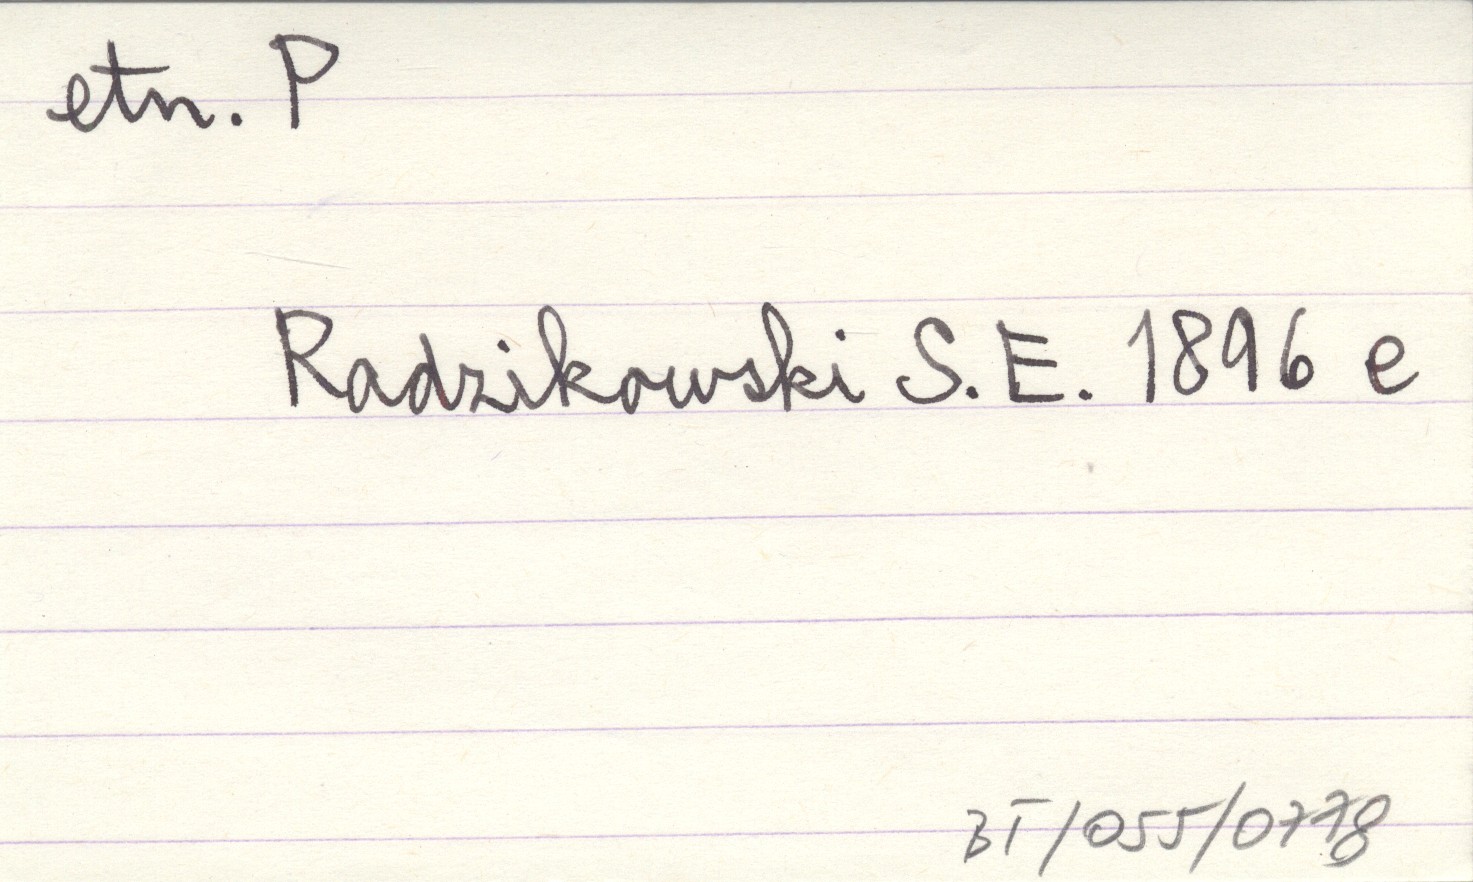 etn. P
Radzikowski S. E. 1896 e
BI/055/0778